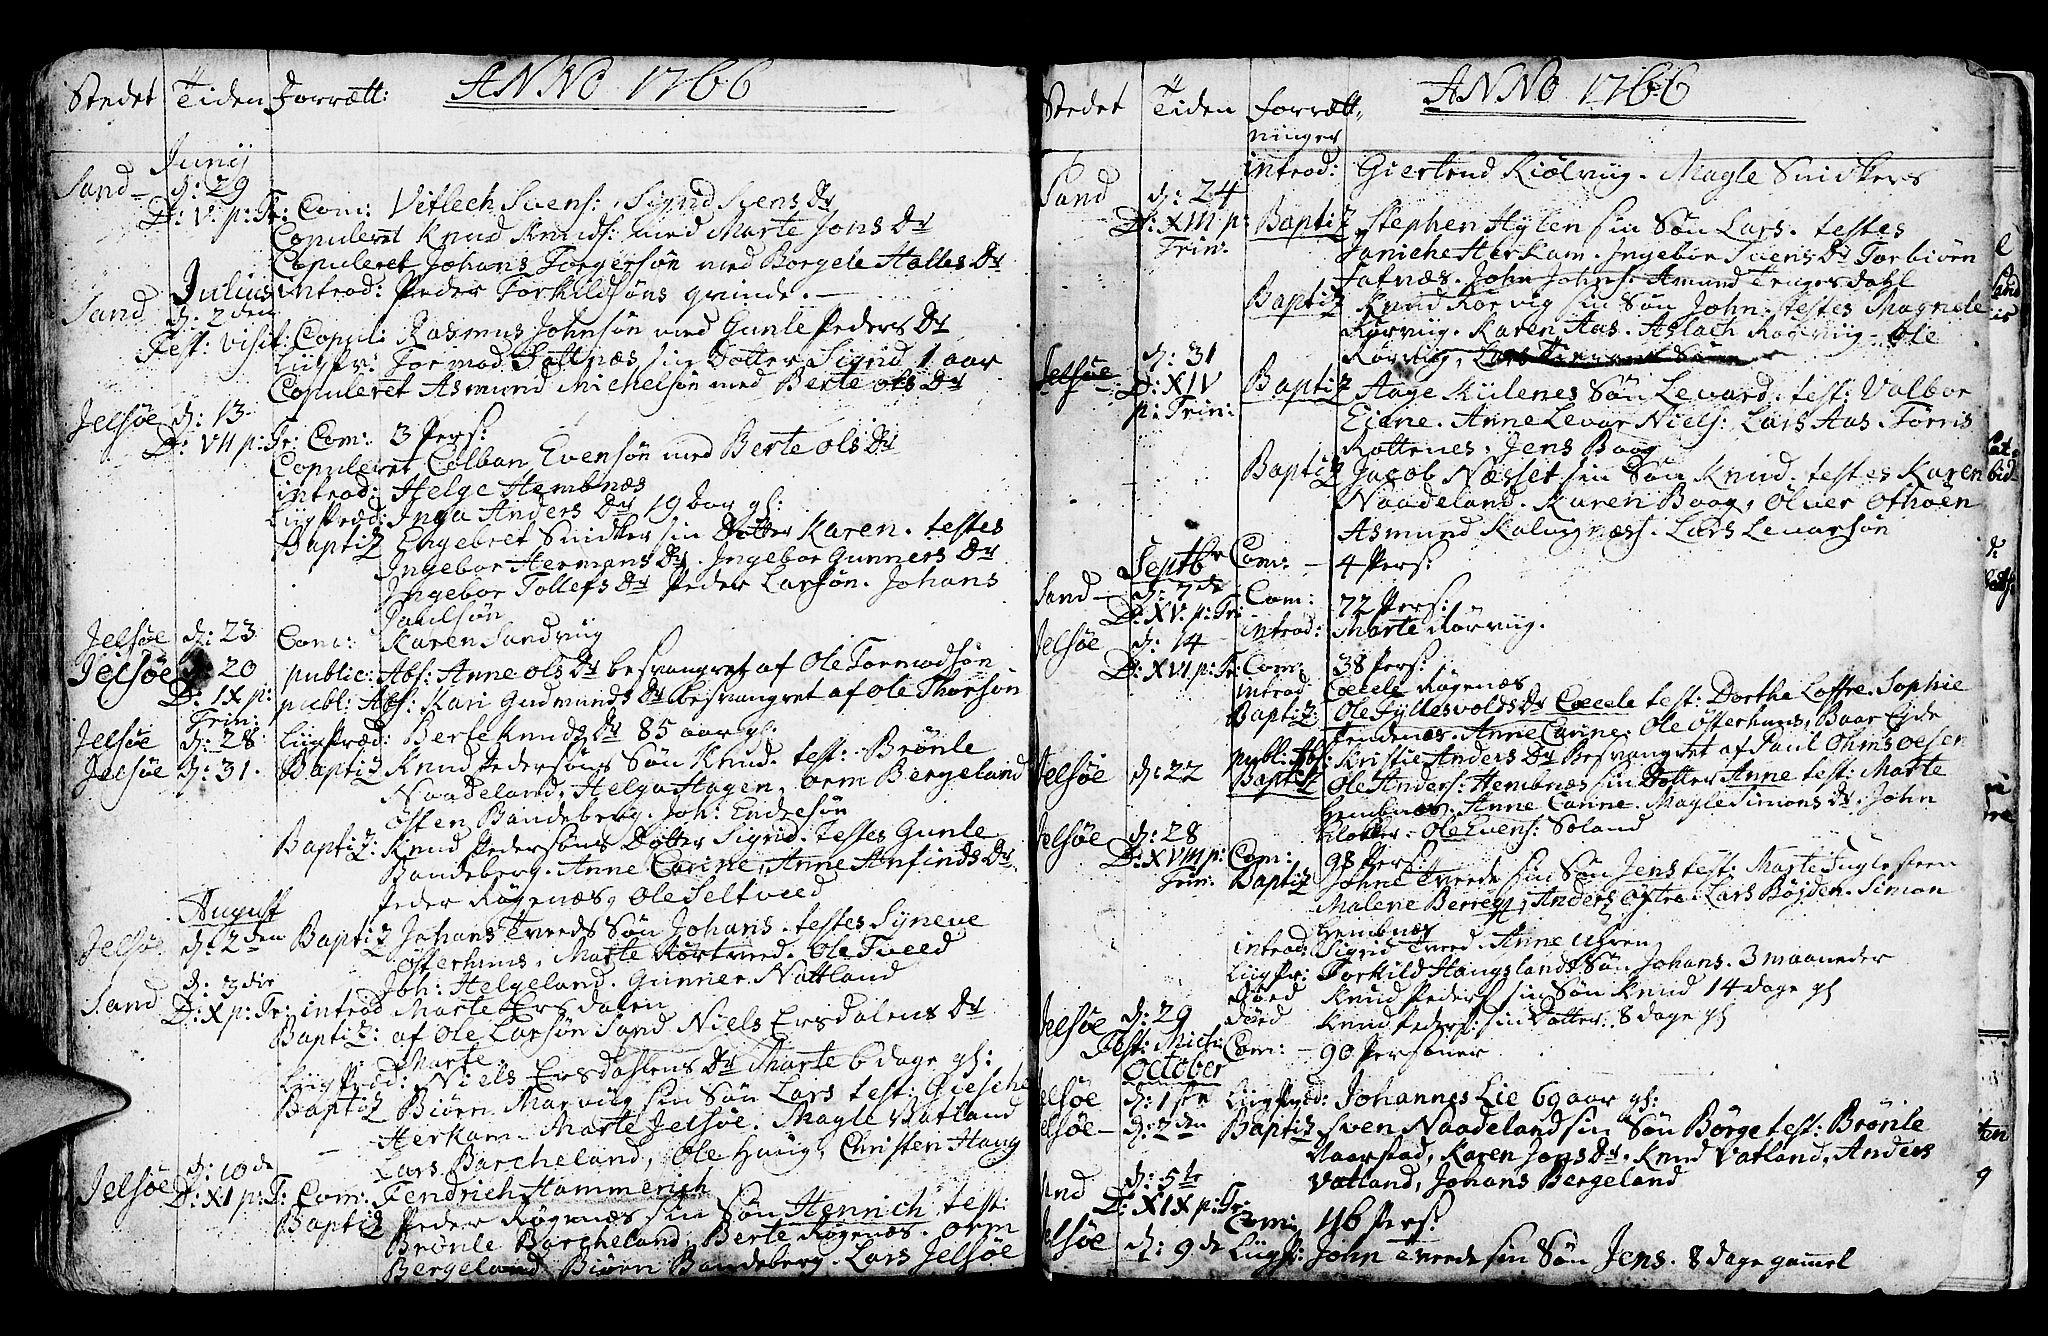 Stedet Tiden Forrætt: ANNO 1766
Junij
Sand d: 29
D: V. p: Tr: Com: Vitlech Svens: Sigrid Svens Dr
Copuleret Knud Knuds: med Marte Jons Dr
Copuleret Johans Torgersøn med Borgele Halles Dr
Julius introd: Peder Torkildsøns qvinde.
Sand d: 2den
Fest: visit: Copul: Rasmus Johnsøn med Gunle Peders Dr
Liigpr: Tormod Sottnæs sin Dotter Sigrid 1 aar
Copuleret Asmund Michelsøn med Berte Ols Dr
Jelsøe d: 13
D: VII p: Tr: Com: 3 Pers:
Copuleret Colban Evensøn med Berte Ols Dr
introd: Helge Hembnæs
Liigpræd: Inga Anders Dr 19 aar gl:
Baptiz Engebret Snidker sin Dotter Karen. testes
Ingebor Hermans Dr, Ingebor Gunners Dr
Ingebor Tollefs Dr Peder Larsøn. Johans
Paulsøn
Jelsøe d: 23 Com: Karen Sandviig
Jelsøe 20 public: Abs: Anne Ols Dr besvangret af Ole Tormodsøn
D: IX p: publ: Abs: Kari Gudmunds Dr besvangret af Ole Thorsøn
Trin:
Jelsøe d: 28 Liigpræd: Berte Knuds Dr 85 aar gl:
Jelsøe d: 31. Baptiz Knud Pedersøns Søn Knud. test: Brønle
Naadeland, Helga Hagen, orm Bergeland
Osten Bandeberg. Joh: Endresøn
Baptiz: Knud Pedersøns Dotter Sigrid. testes Gunle
Bandeberg. Anne Carine, Anne Anfinds Dr
Peder Røgenæs, Ole Seltveed
August
Jelsøe d: 2den Baptiz Johans Tveeds Søn Johans. testes Syneve
Osterhuus, Marte Kørtveed. Ole Tveed
Joh: Helgeland. Gunner Nattland
d: 3die
Sand D: X p: Tr: introd Marte Ersdalen
Baptiz: af Ole Larsøn Sand Niels Ersdalens Dr
Marte
Liigpræd: Niels Ersdahlens Dr Marte 6 dage gl:
Baptiz Biørn Marviig sin Søn Lars test: Giesche
Herkam. Marte Jelsøe. Magle Vatland
Lars Barcheland, Ole Haug, Christen Haug
Jelsøe d: 10de
D: XI p: T: Com: Fendrich Hammerich
Baptiz Peder Røgenæs sin Søn Henrich test:
Brønle Barcheland, Berte Røgenæs. orm
Bergeland Biørn Bandeberg. Lars Jelsøe
Stedet Tiden forrætt, ANNO 1766
ninger
introd: Giertrud Kiølviig. Magle Snidkers
Sand d: 24
D: XIII p: Baptiz Stephen Hylen sin Søn Lars. testes
Trin: Janiche Herkam. Ingebor Svens Dr Torbiørn
Fatnæs. John Johns: Amund Tengesdahl
Baptiz Knud Rørviig sin Søn John. testes Magnele
Rørviig. Karen Aas. Aslach Rørviig. Ole
Rørviig,
Jelsøe d: 31
D: XIV Baptiz Aage Kiilenes Søn Levard. test: Valbor
p: Trin: Eidne. Anne Levar Niels: Lars Aas. Torris
Rottenes. Jens Baag
Baptiz Jacob Næsset sin Søn Knud. testes Karen
Naadeland. Karen Baag, Olver Othoen
Asmund Kalvignæs. Lars Levarsøn
Septbr Com: 4 Pers:
Sand d: 7de Com: 72 Pers:
D: XV. p: Tr: introd: Marte Rørviig.
Jelsøe d: 14
D: XVI p: Tr: Com: 38 Pers:
introd Cecele Røgenæs
Baptiz: Ole Fyllesvolds Dr Cecele test: Dorthe Loftre. Sophie
Tendenæs. Anne Carine. Ole Østerhuus, Baar Eide
publ: Abs: Kristie Anders Dr Besvangret af Paul
Jelsøe d: 22 Baptiz Ole Anders: Hembnæs sin Dotter Anne test: Marte
Hembnæs. Anne Carine. Magle Simons Dr. John
Klokker. Ole Evens: Soland
Jelsøe d: 28
D: XVIII p: Com: 98 Pers:
Trin: Baptiz Johne Tveede sin Søn Jens test: Marte Fuglesteen
Malene Berreg, Anders Øftre. Lars Bøjden. Simon
Hembnæs
introd: Sigrid Tveed. Anne Uhren
Liigpr: Torkild Haugslands Søn Johans. 3 maaneder
døed Knud Peders sin Søn Knud 14 dage gl
Jelsøe d: 29 døed Knud Peders: sin Dotter: 8 dage gl
Fest: Mich: Com: 90 Personer
October
Jelsøe d: 1ste Liigpræd: Johannes Lie 69 aar gl:
Jelsøe d: 2den Baptiz Sven Naadeland sin Søn Børge test: Brønle
Naarstad, Karen Jons Dr. Knud Vatland. Anders
Vatland, Johans Bergeland
Sand d: 5te
D: XIX p: Tr: Com: 46 Pers:
Jelsøe d: 9de Liigp: John Tveede sin Søn Jens. 8 dage gammel